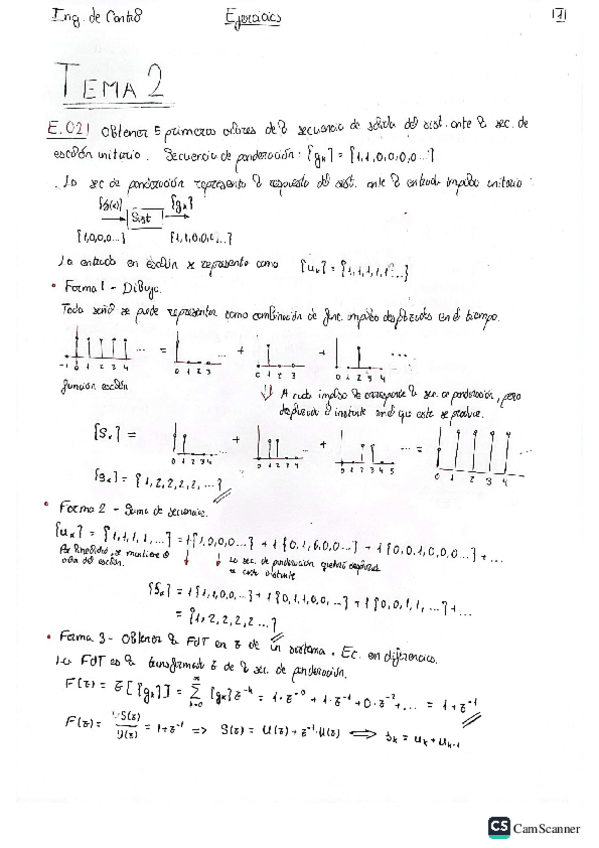 Ing. de Control Ejercicios 1
TEMA 2
E.02| Obtener 5 primeros valores de la secuencia de salida del sist. ante la sec. de
escalón unitario. Secuencia de ponderación: {gₖ} = {1,1,0,0,0,0...}
. La sec de ponderación representa la respuesta del sist. ante la entrada impulso unitario:
{gₖ}
Sist
{1,0,0...} {1,1,0,0,...}
La entrada en escalón se representa como {uₖ} = {1,1,1,1,1...}
• Forma 1 - Dibujo.
Toda señal se puede representar como combinación de func. impulso desplazadas en el tiempo.
... = + + ...
-1 0 1 2 3 4 0 1 2 3 0 1 2 3 0 1 2 3 4
función escalón ⇓ A cada impulso le corresponde la sec. de ponderación, pero
desplazada al instante en el que este se produce.
{Sₖ} = + + ... = ...
0 1 2 3 4 0 1 2 3 4 0 1 2 3 4 5 0 1 2 3 4
= {1,2,2,2,2,...}
• Forma 2 - Suma de secuencias.
{uₖ} = {1,1,1,1,...} = 1{1,0,0,0...} + 1{0,1,0,0,0...} + 1{0,0,1,0,0,0...} + ...
se mantiene el ↓ ↓ La sec. de ponderación
valor del escalón.
{Sₖ} = 1{1,1,0,0,...} + 1{0,1,1,0,0,...} + 1{0,0,1,1,...} + ...
= {1,2,2,2,2...}
• Forma 3 - Obtener la FdT en z de un sistema. Ec. en diferencias.
La FdT es la transformada z de la sec. de ponderación.
F(z) = Z[{gₖ}] = ∑ₖ₌₀^∞ {gₖ}z⁻ᵏ = 1·z⁻⁰ + 1·z⁻¹ + 0·z⁻² + ... = 1+z⁻¹
F(z) = S(z)/U(z) = 1+z⁻¹ => S(z) = U(z) + z⁻¹·U(z) ⟺ Sₖ = uₖ + uₖ₋₁
CS CamScanner